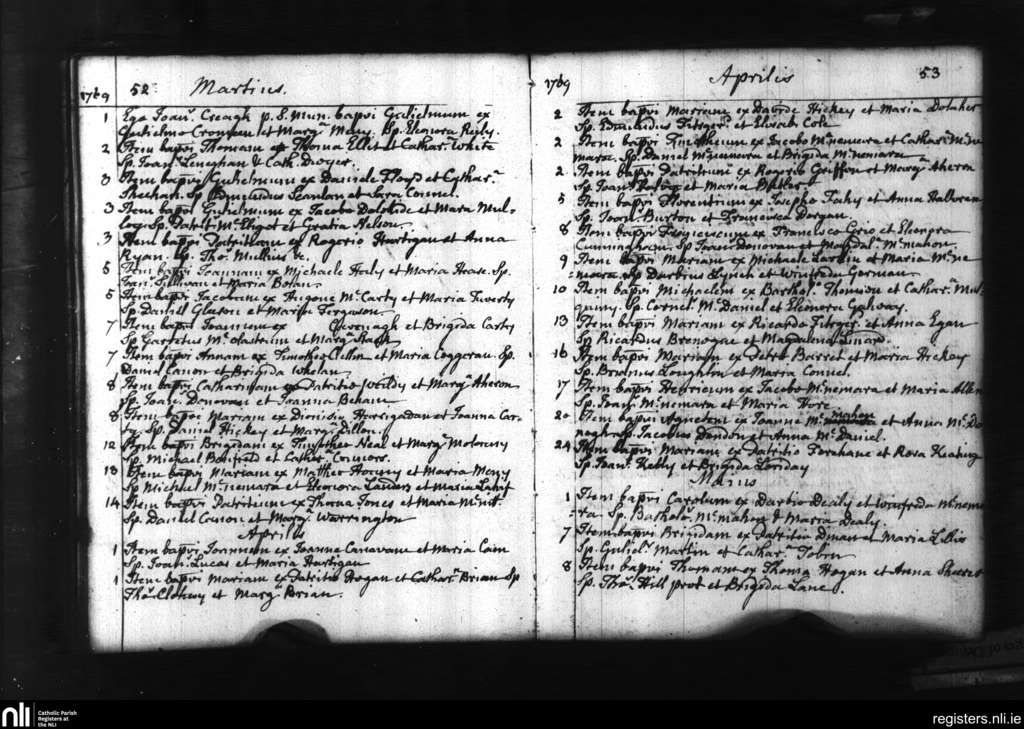 1769 52 Martius.
1 Ego Joan. Creagh p. S. Mun. bapvi Gulielmum ex
Gulielmo Cronven et Marg Meny. Sp. Elenora Reily.
2 Item bapvi Thomam ex Thoma Ellet et Cathar. White
Sp. Joan. Lenaghan & Cath. Dwyer.
3 Item bapvi Gulielmum ex Daniele Floyd et Cathar.
Sheehan. Sp. Cornelius Scanlan et Sara Connel.
3 Item bapvi Gulielmum ex Jacobo et Mara Mul-
Sp. Patrit. Mc. Eligot et Gratia Nelson.
3 Item bapvi Patritium ex Rogerio Hartigan et Anna
Ryan. Sp. Tho. Mullins &c.
5 Item bapvi Joannam ex Michaele Healy et Maria Hease. Sp.
Joan. Sullivan et Maria Bolan.
5 Item bapvi Jacobum ex Hugone Mc. Carty et Maria
Sp. Daniel Gleeson et Maria Ferguson
7 Item bapvi Joannem ex Cavenagh et Brigida Carty
Sp. Garretus Mc. et Marg. Stack
7 Item bapvi Annam ex Timotheo et Maria Coggeran. Sp.
Daniel Canon et Brigida Whelan.
8 Item bapvi Catharinam ex Patritio Weldy et Marg. Aheron
Sp. Joan. Donovan et Joanna Behane
8 Item bapvi Mariam ex Dionisio et Joanna Car-
ty Sp. Daniel Hickey et Marg. Dillon.
12 Item bapvi Brigidam ex Timotheo Neal et Marg. Molowny
Sp. Michael et Cathar. Connors.
13 Item bapvi Mariam ex Matthew et Maria Meny
Sp. Michael Mc.nemara et Elenora Landers et Maria
14 Item bapvi Patritium ex Thoma Jones et Maria
Sp. Daniel Connon et Marg. Warrington
Aprilis
1 Item bapvi Joannem ex Joanne Canavane et Maria Cain
Sp. Joan. Lucas et Maria Hartigan
1 Item bapvi Mariam ex Patritio Hogan et Cathar. Brian Sp
Tho. Clohesy et Marg. Brian.
1769 Aprilis 53
2 Item bapvi Mariam ex Davide Hickey et Maria Dolaher
Sp. Edmundus Fitzger. et Elisab. Cole
2 Item bapvi ex Jacobo Mc.nemera et Cathar. Mc.ne
mara. Sp. Daniel Mc.nemera et Brigida Mc.nemara
2 Item bapvi Patritium ex Rogerio Griffin et Marg. Ahern
Sp. Joan. et Maria Butler
5 Item bapvi Florentium ex Josepho Fahy et Anna Halloran
Sp. Joan. Burton et Francisca Dorgan.
8 Item bapvi Franciscum ex Francisco Grio et Elenora
Cunningham. Sp. Joan. Donovan et Magdal. Mc.mahon.
9 Item bapvi Mariam ex Michaele Larkin et Maria Mc.ne
mara. Sp. Darbius Lynch et Winifreda Gorman.
10 Item bapvi Michaelem ex Barthol. Thomson et Cathar. Mul-
quiny. Sp. Cornel. Mc. Daniel et Elenora Galway.
13 Item bapvi Mariam ex Ricardo Fitzger. et Anna Egan
Sp. Ricardus Brenogae et Magdalena
16 Item bapvi Mariam ex Petro Barret et Maria Hickey
Sp. Brianus Loughlin et Maria Connel.
17 Item bapvi Henricum ex Jacobo Mc.nemara et Maria Allen
Sp. Joan. Mc.nemara et Maria Hore
20 Item bapvi Agnetem ex Joanne Mc. mahon et Anna Mc. Do
nogh Sp. Jacobus Dondon et Anna Mc. Daniel.
24 Item bapvi Mariam ex Patritio Forehane et Rosa Keating
Sp. Joan. Kelly et Brigida Loriday
Maius
1 Item bapvi Carolum ex Darbio Dealy et Winifreda Mc.nema
ra. Sp. Bathol. Mc.mahon & Maria Dealy.
7 Item bapvi Brigidam ex Patritio Dinan et Maria Lillis
Sp. Guliel. Martin et Cathar. Tobin
8 Item bapvi Thomam ex Thoma Hogan et Anna
Sp. Tho. Hill prot et Brigida Lane.
nli Catholic Parish
Registers at
the NLI
registers.nli.ie